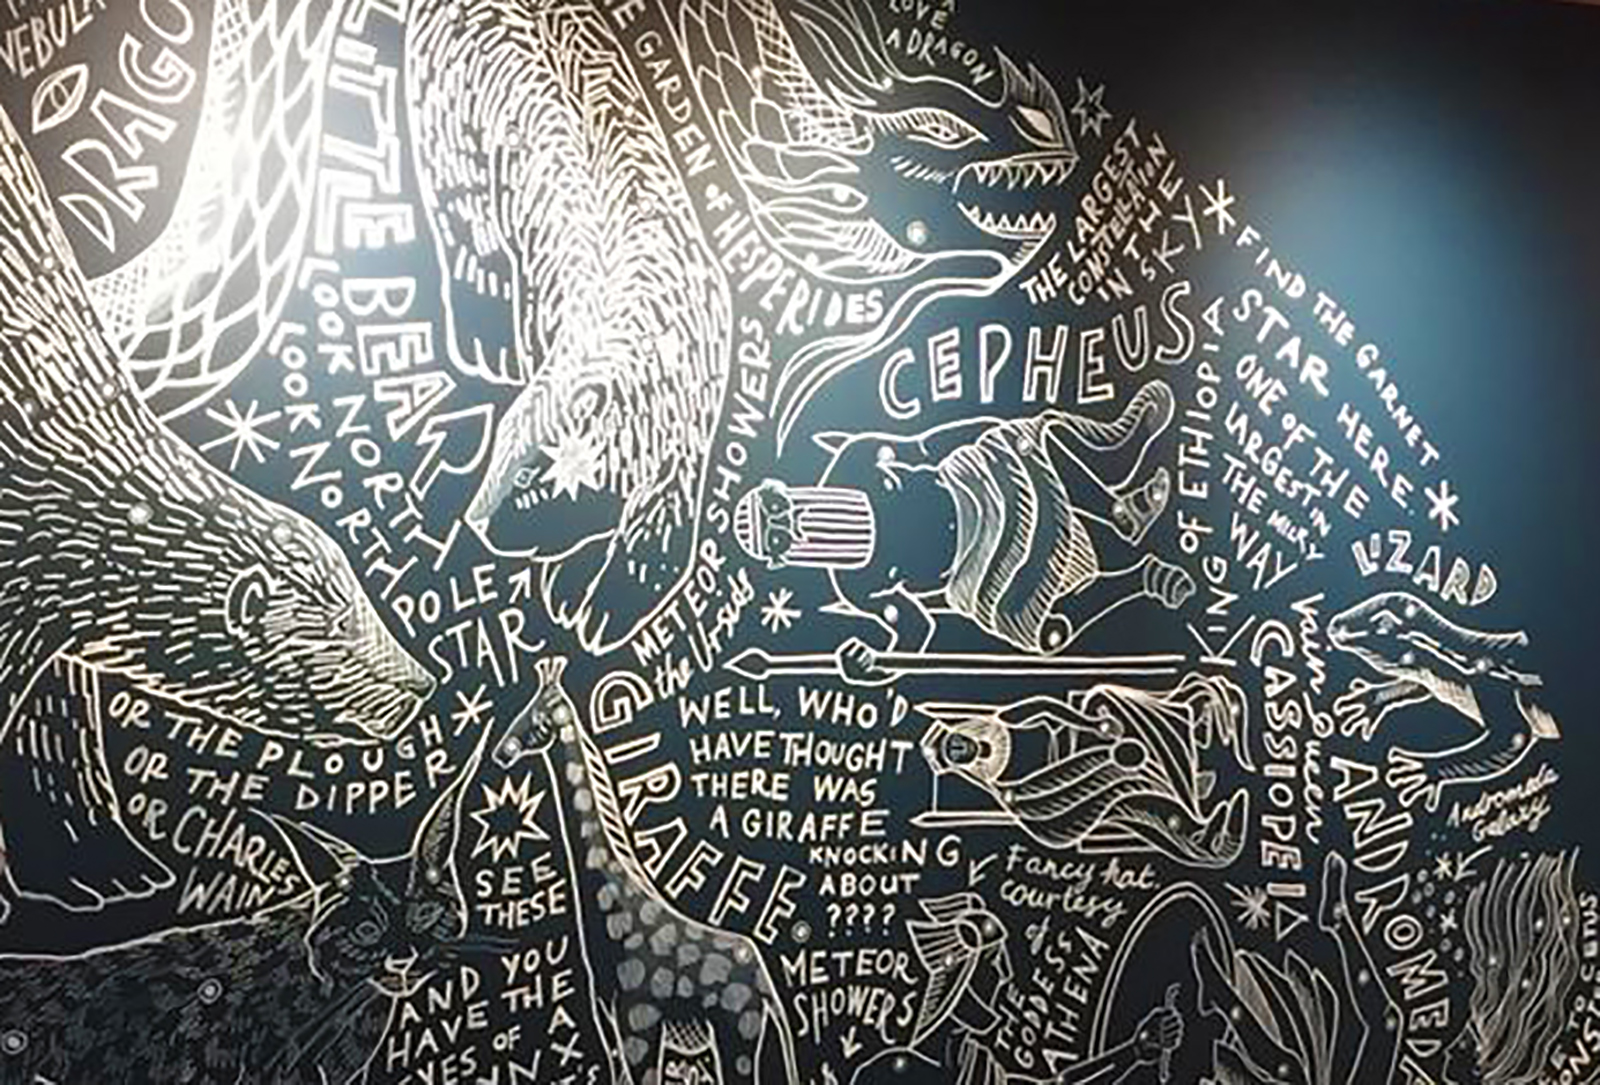 NEBULA
DRAGO
LITTLE BEAR
LOOK NORTH
LOOK NORTH
POLE
STAR
THE GARDEN OF HESPERIDES
LOVE
A DRAGON
THE LARGEST
CONSTELLATION
IN THE
SKY
CEPHEUS
KING OF ETHIOPIA
FIND THE GARNET
STAR HERE
ONE OF THE
LARGEST IN
THE MILKY
WAY
LIZARD
METEOR SHOWERS
the Ursids
OR THE PLOUGH
OR THE DIPPER
OR CHARLES
WAIN
GIRAFFE
WELL, WHO'D
HAVE THOUGHT
THERE WAS
A GIRAFFE
KNOCKING
ABOUT
????
CASSIOPEIA
Vain Queen
ANDROMEDA
Andromeda
Galaxy
SEE
THESE
AND YOU
HAVE THE
EYES OF A
METEOR
SHOWERS
Fancy hat
courtesy
of
THE
GODESS
ATHENA
CETUS